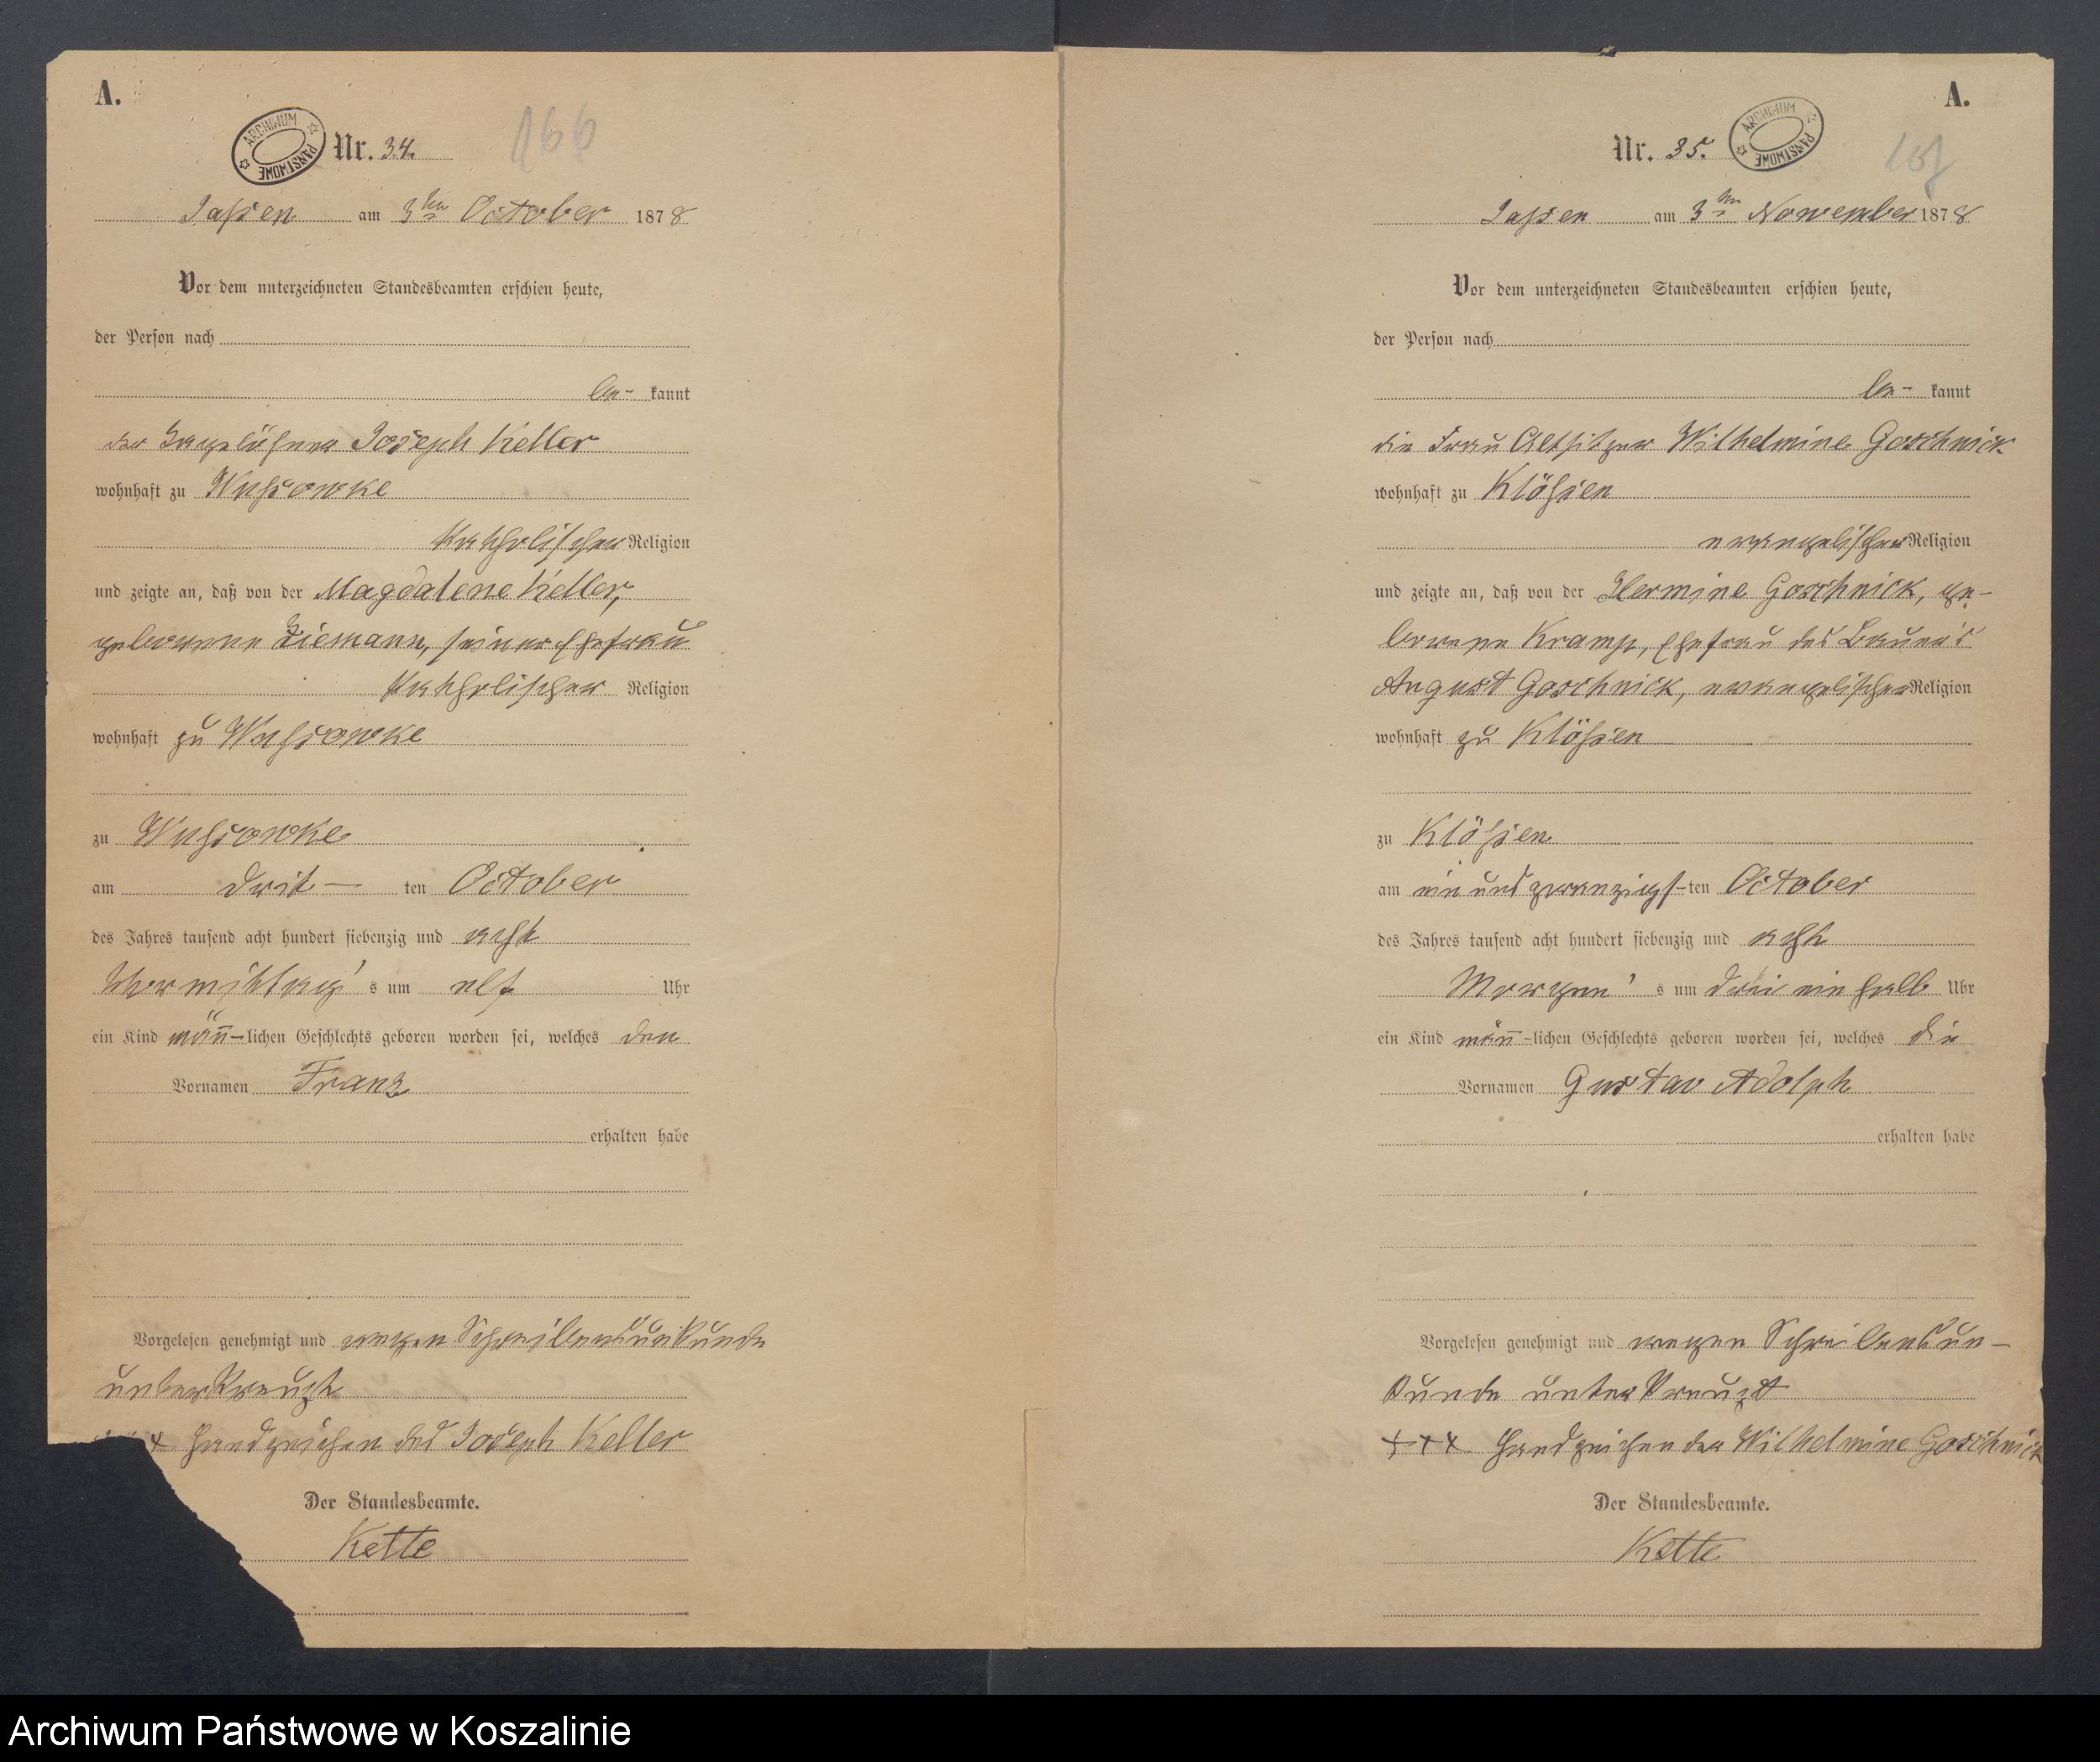 A.
ARCHIWUM PAŃSTWOWE
Nr. 34.
166
Jassen am 3ten October 1878
Vor dem unterzeichneten Standesbeamten erschien heute,
der Person nach
be- kannt
der Tagelöhner Joseph Keller
wohnhaft zu Wussowke
katholischer Religion
und zeigte an, daß von der Magdalene Keller,
geborenen Ziemann, seiner Ehefrau
katholischer Religion
wohnhaft zu Wussowke
zu Wussowke
am drit- ten October
des Jahres tausend acht hundert siebenzig und acht
Vormittag's um elf Uhr
ein Kind männ-lichen Geschlechts geboren worden sei, welches den
Vornamen Franz
erhalten habe
Vorgelesen genehmigt und wegen Schreibensunkunde
unterkreuzt
+ Handzeichen des Joseph Keller
Der Standesbeamte.
Kette
A.
Nr. 35.
ARCHIWUM PAŃSTWOWE
Jassen am 3ten November 1878
Vor dem unterzeichneten Standesbeamten erschien heute,
der Person nach
be- kannt
die Frau Altsitzer Wilhelmine Goschnick
wohnhaft zu Klössen
evangelischer Religion
und zeigte an, daß von der Hermine Goschnick, ge-
borene Kramp, Ehefrau des Bauer's
August Goschnick, evangelischer Religion
wohnhaft zu Klössen
zu Klössen
am ein und zwanzigst-ten October
des Jahres tausend acht hundert siebenzig und acht
Morgen's um drei ein halb Uhr
ein Kind männ-lichen Geschlechts geboren worden sei, welches die
Vornamen Gustav Adolph
erhalten habe
Vorgelesen genehmigt und wegen Schreibensun-
kunde unterkreuzt
+++ Handzeichen der Wilhelmine Goschnick
Der Standesbeamte.
Kette
Archiwum Państwowe w Koszalinie